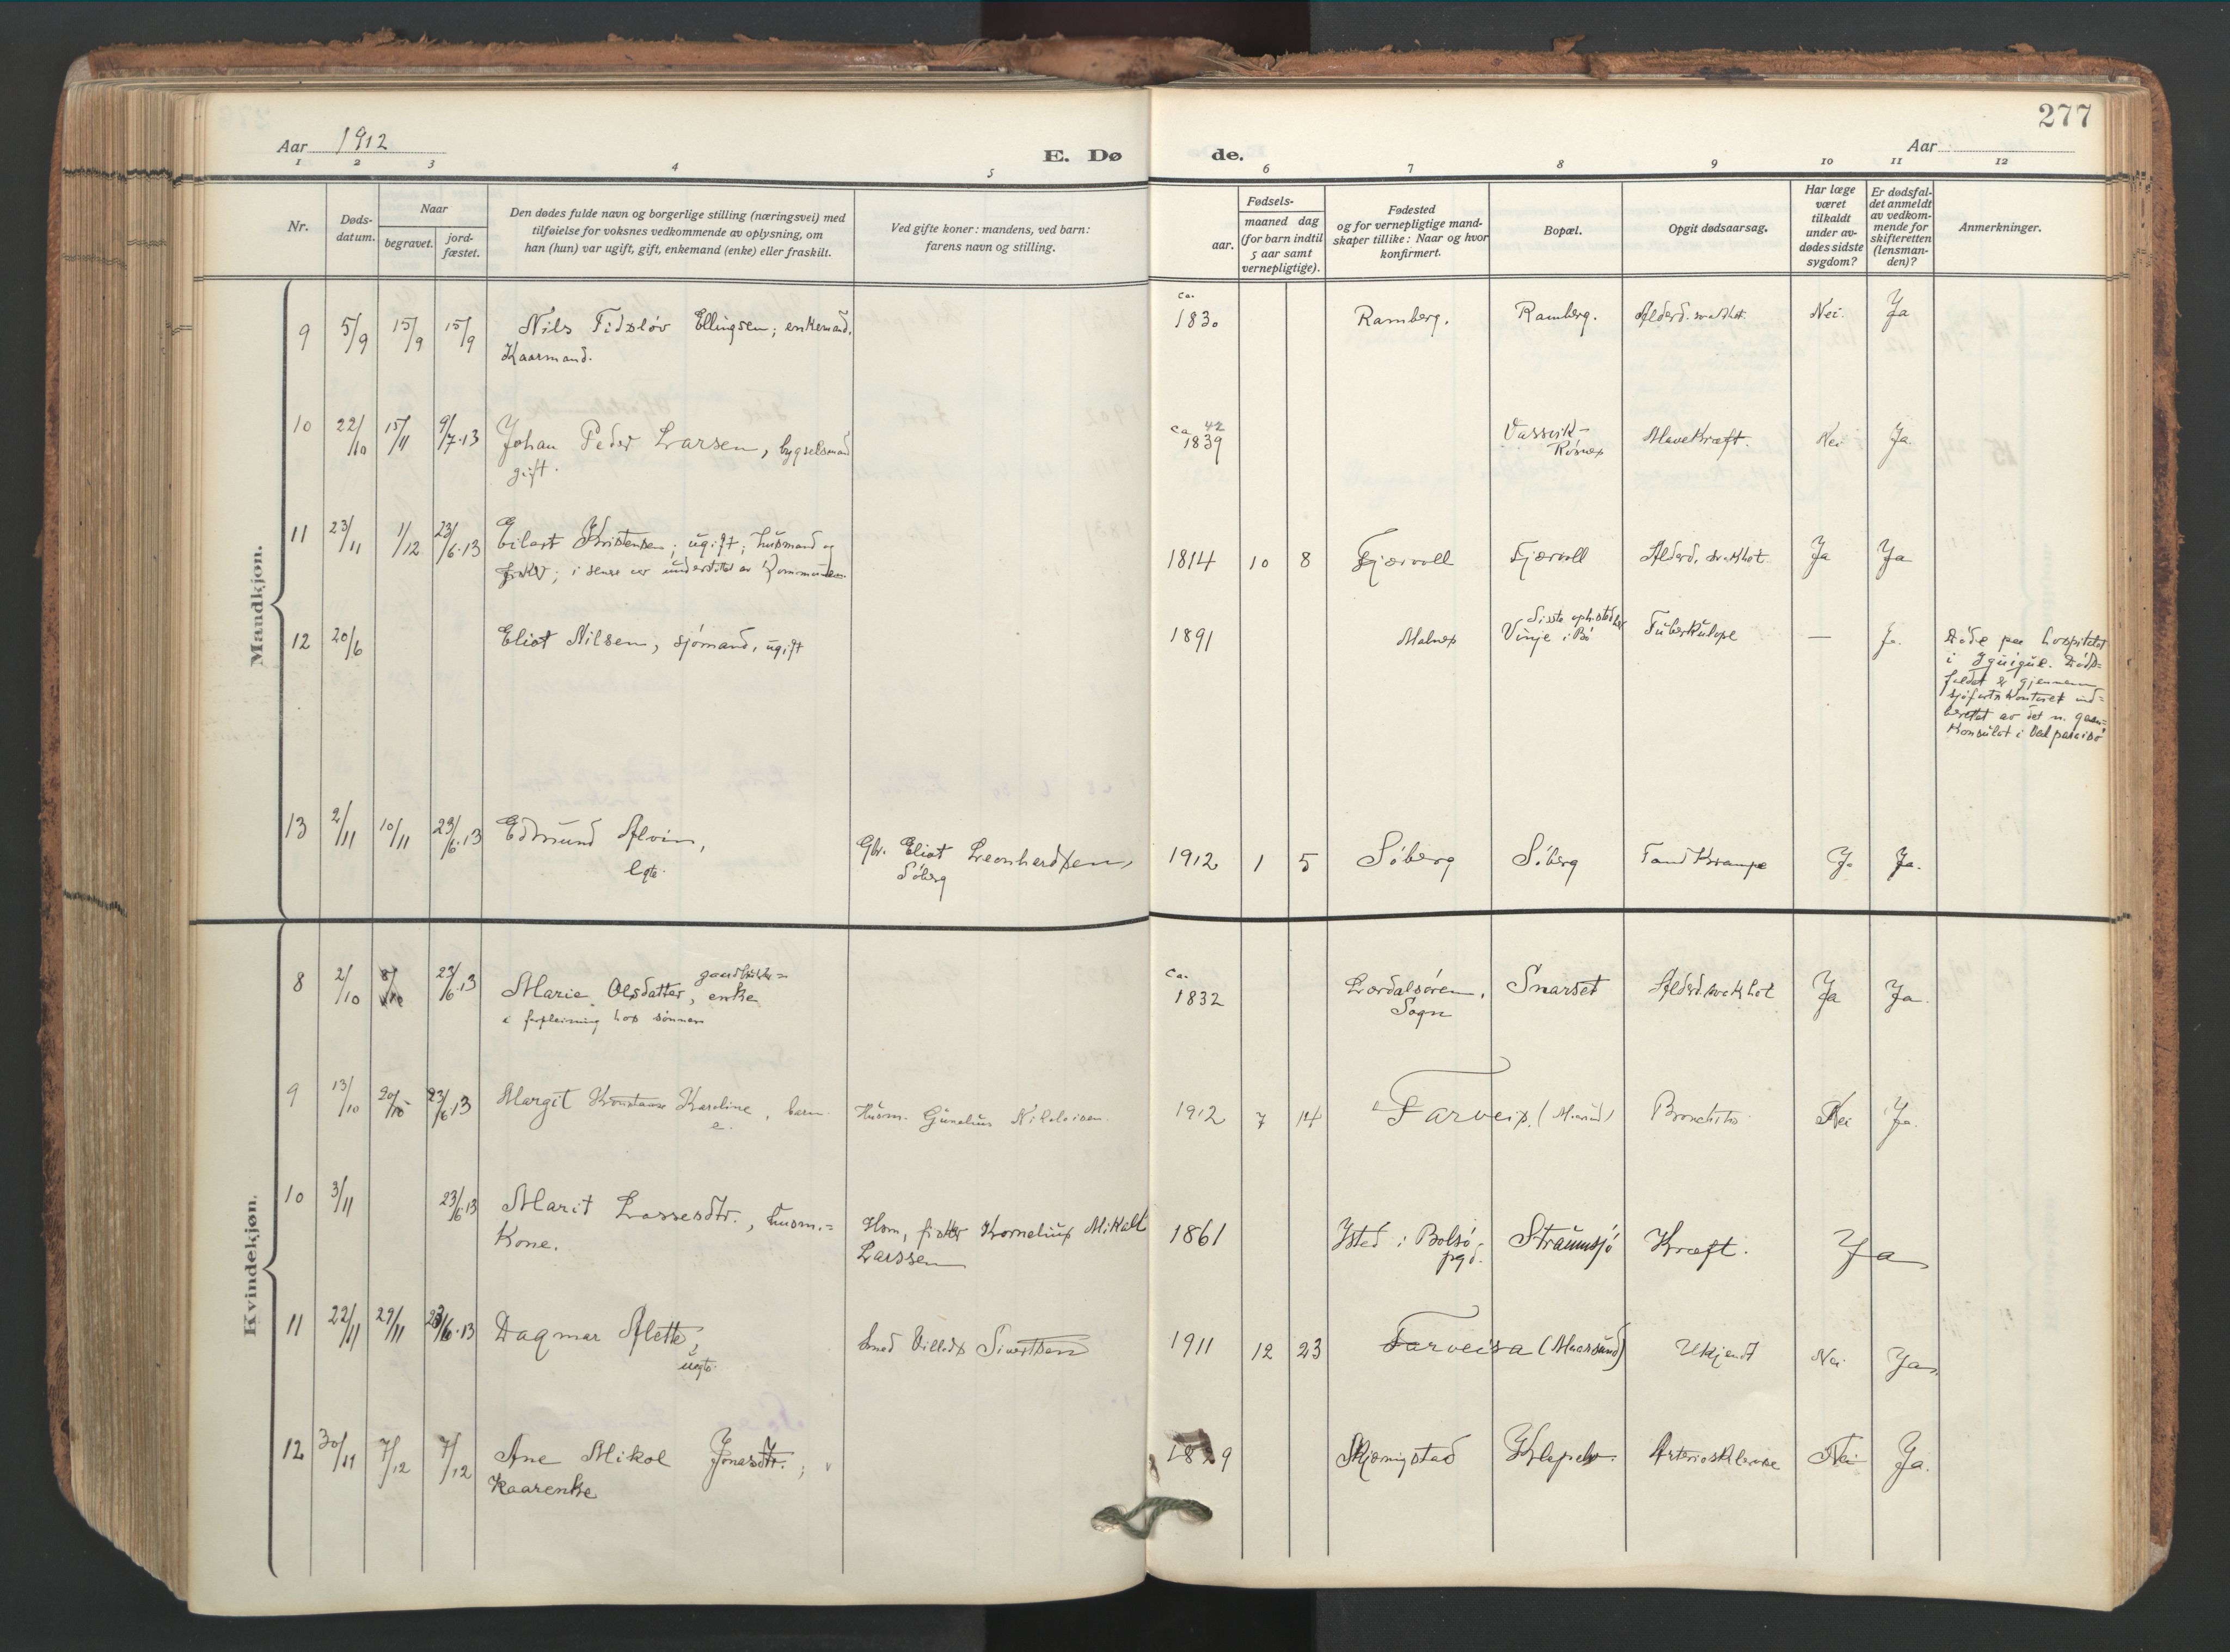 277
Aar 1912
E. Dø
de.
Aar
1 2 3 4 5 6 7 8 9 10 11 12
Nr.
Døds-
datum.
Naar
begravet.
jord-
fæstet.
Den dødes fulde navn og borgerlige stilling (næringsvei) med
tilføielse for voksnes vedkommende av oplysning, om
han (hun) var ugift, gift, enkemand (enke) eller fraskilt.
Ved gifte koner: mandens, ved barn:
farens navn og stilling.
Fødsels-
aar.
maaned dag
(for barn indtil
5 aar samt
vernepligtige).
Fødested
og for vernepligtige mand-
skaper tillike: Naar og hvor
konfirmert.
Bopæl.
Opgit dødsaarsag.
Har læge
været
tilkaldt
under av-
dødes sidste
sygdom?
Er dødsfal-
det anmeldt
av vedkom-
mende for
skifteretten
(lensman-
den)?
Anmerkninger.
Mandkjøn.
9 5/9 15/9 15/9 Nils Fidsløv Ellingsen; enkemand. ca. 1830 Ramberg. Ramberg. Alderd. svakhet. Nei. Ja
Kaarmand.
10 22/10 15/11 9/7-13 Johan Peder Larsen, bygselsmand ca. 42 1839 Vassvik- Mavekræft. Nei Ja.
gift.
11 23/11 1/12 23/6-13 Eilart Kristensen; ugift; husmand og 1814 10 8 Fjærvoll Fjærvoll Alderd. svakhet. Ja Ja
fisker; i senere aar understøttet av Kommunen.
12 20/6 Eliot Nilsen, sjømand, ugift 1891 Malnes Sidste opholdsted her Vinje i Bø Tuberkulose — Ja. Døde paa hospitalet
i Iquique. Døds-
faldet er gjennem
sjøfartskontoret ind-
berettet av det n. gen.-
Konsulat i Valparaiso
13 2/11 10/11 23/6-13 Edmund Alvin, Gbr. Eliot Leonhardsen, 1912 1 5 Søberg Søberg Tandkrampe Ja Ja.
egte. Søberg
Kvindekjøn.
8 2/10 8/10 23/6-13 Marie Olsdatter, gaardbruker= enke ca. 1832 Lærdalsøren, Snarset Alderd. svakhet Ja Ja.
i forpleining hos sønnen Sogn
9 13/10 20/10 23/6-13 Margit Konstanse Karoline, barn Husm. Gunelius Nikolaisen 1912 7 14 Farveis. Bronchitis Nei Ja.
e.
10 3/11 23/6-13 Marit Lassesdtr., husm.= Hsm, fisker Kornelius Mikal 1861 Isted i Bolsø Straumsjø Kræft. Ja
Kone. Larssen pgd.
11 22/11 29/11 23/6-13 Dagmar Alette, Smed Villads Sivertsen 1911 12 23 Farveisa (Maarsund) Ukjendt Nei Ja.
uegte
12 30/11 7/12 7/12 Ane Mikol Jonasdtr.; Skjærnigstad Nei Ja.
Kaarenke